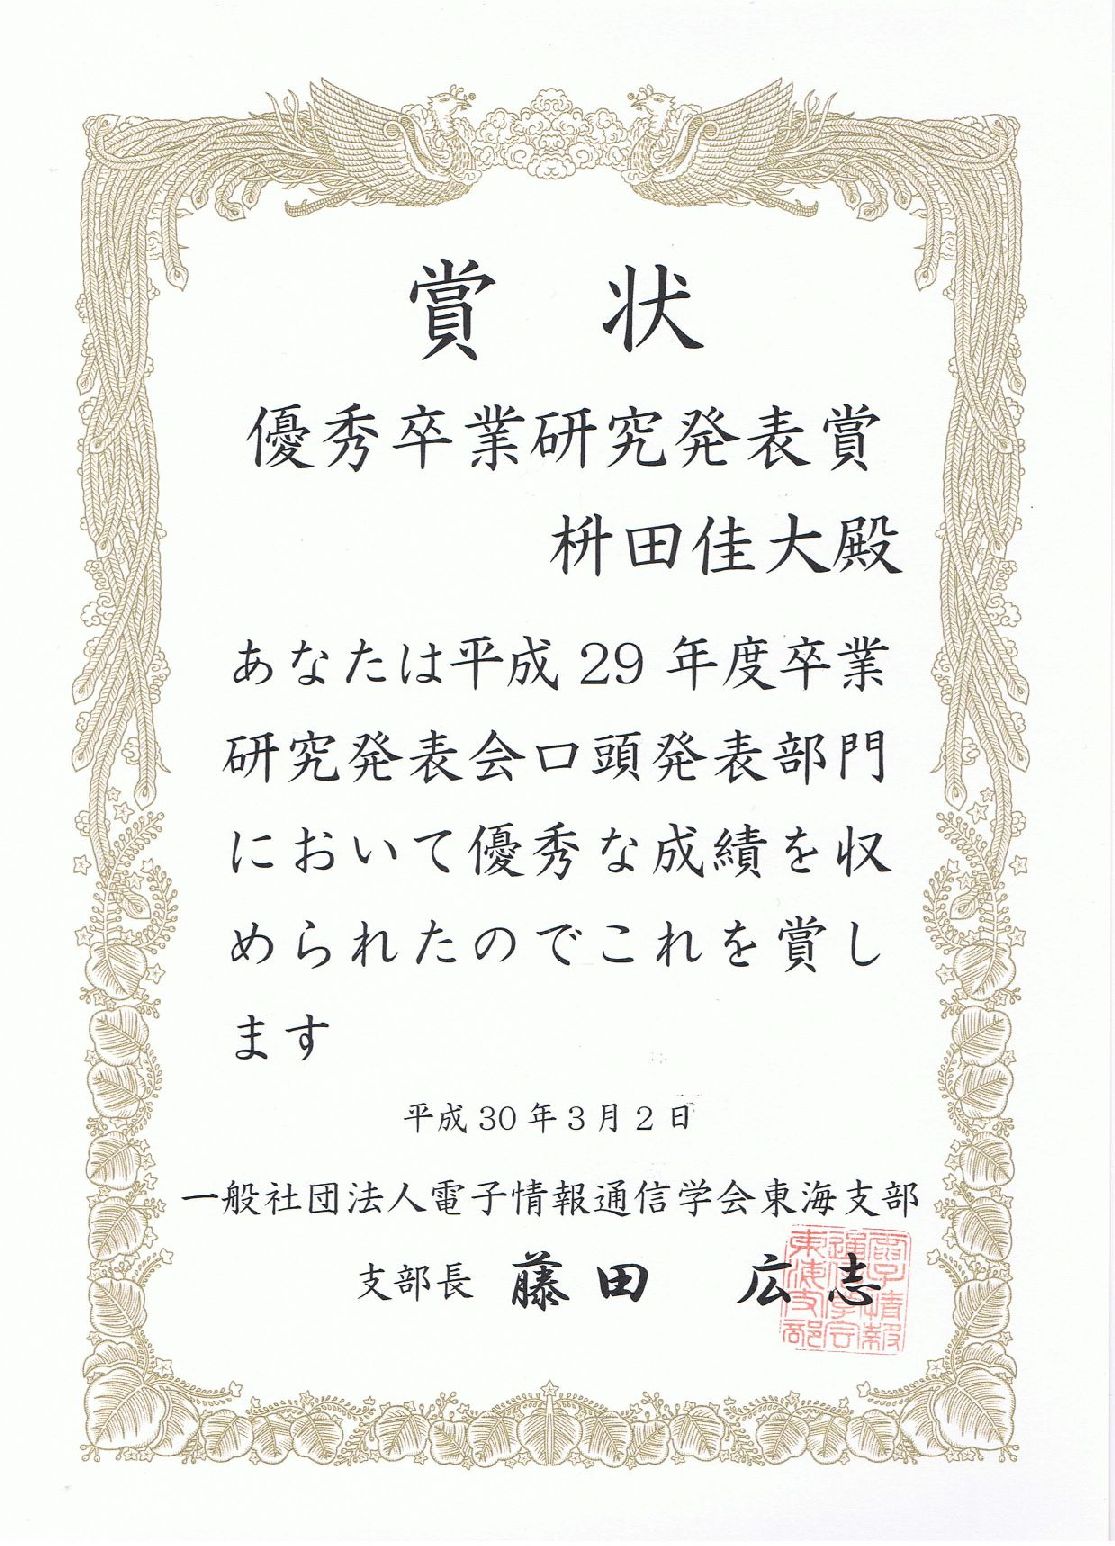 賞　状
優秀卒業研究発表賞
枡田佳大殿
あなたは平成 29 年度卒業
研究発表会口頭発表部門
において優秀な成績を収
められたのでこれを賞し
ます
平成 30 年 3 月 2 日
一般社団法人電子情報通信学会東海支部
支部長　藤田　広志
電子情報
通信学会
東海支部